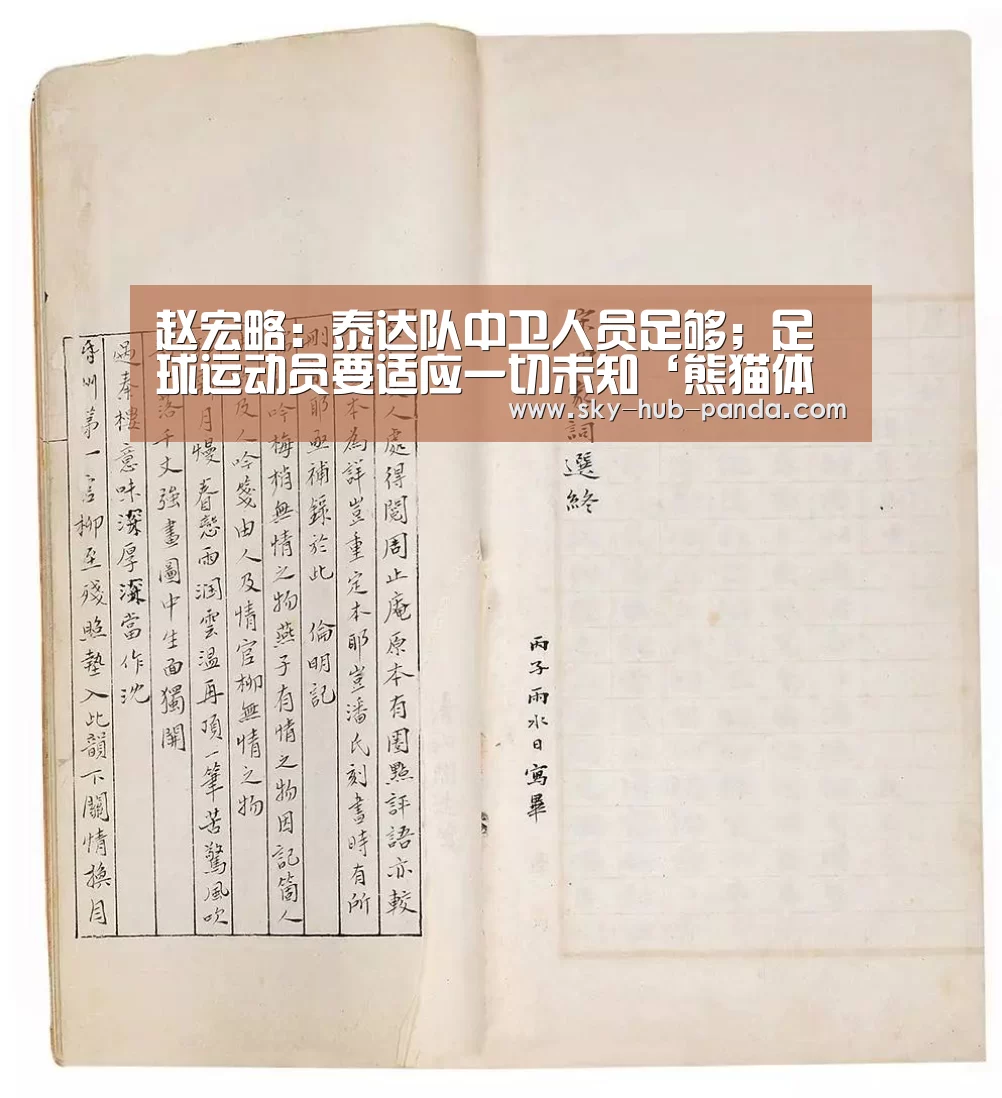 赵宏略：泰达队中卫人员足够；足
球运动员要适应一切未知‘熊猫体
www.sky-hub-panda.com
詞選終
丙子雨水日寫畢
人處得閱周止庵原本有圈點評語亦較
本為詳豈重定本耶豈潘氏刻書時有所
刪耶亟補錄於此 倫明記
吟梅梢無情之物燕子有情之物因記箇人
及人吟箋由人及情官柳無情之物
月慢春愁雨潤雲溫再頂一筆苦驚風吹
落千丈強畫圖中生面獨開
過奉樓意味深厚深當作沈
第一言柳至殘照墊入此韻下關情換月